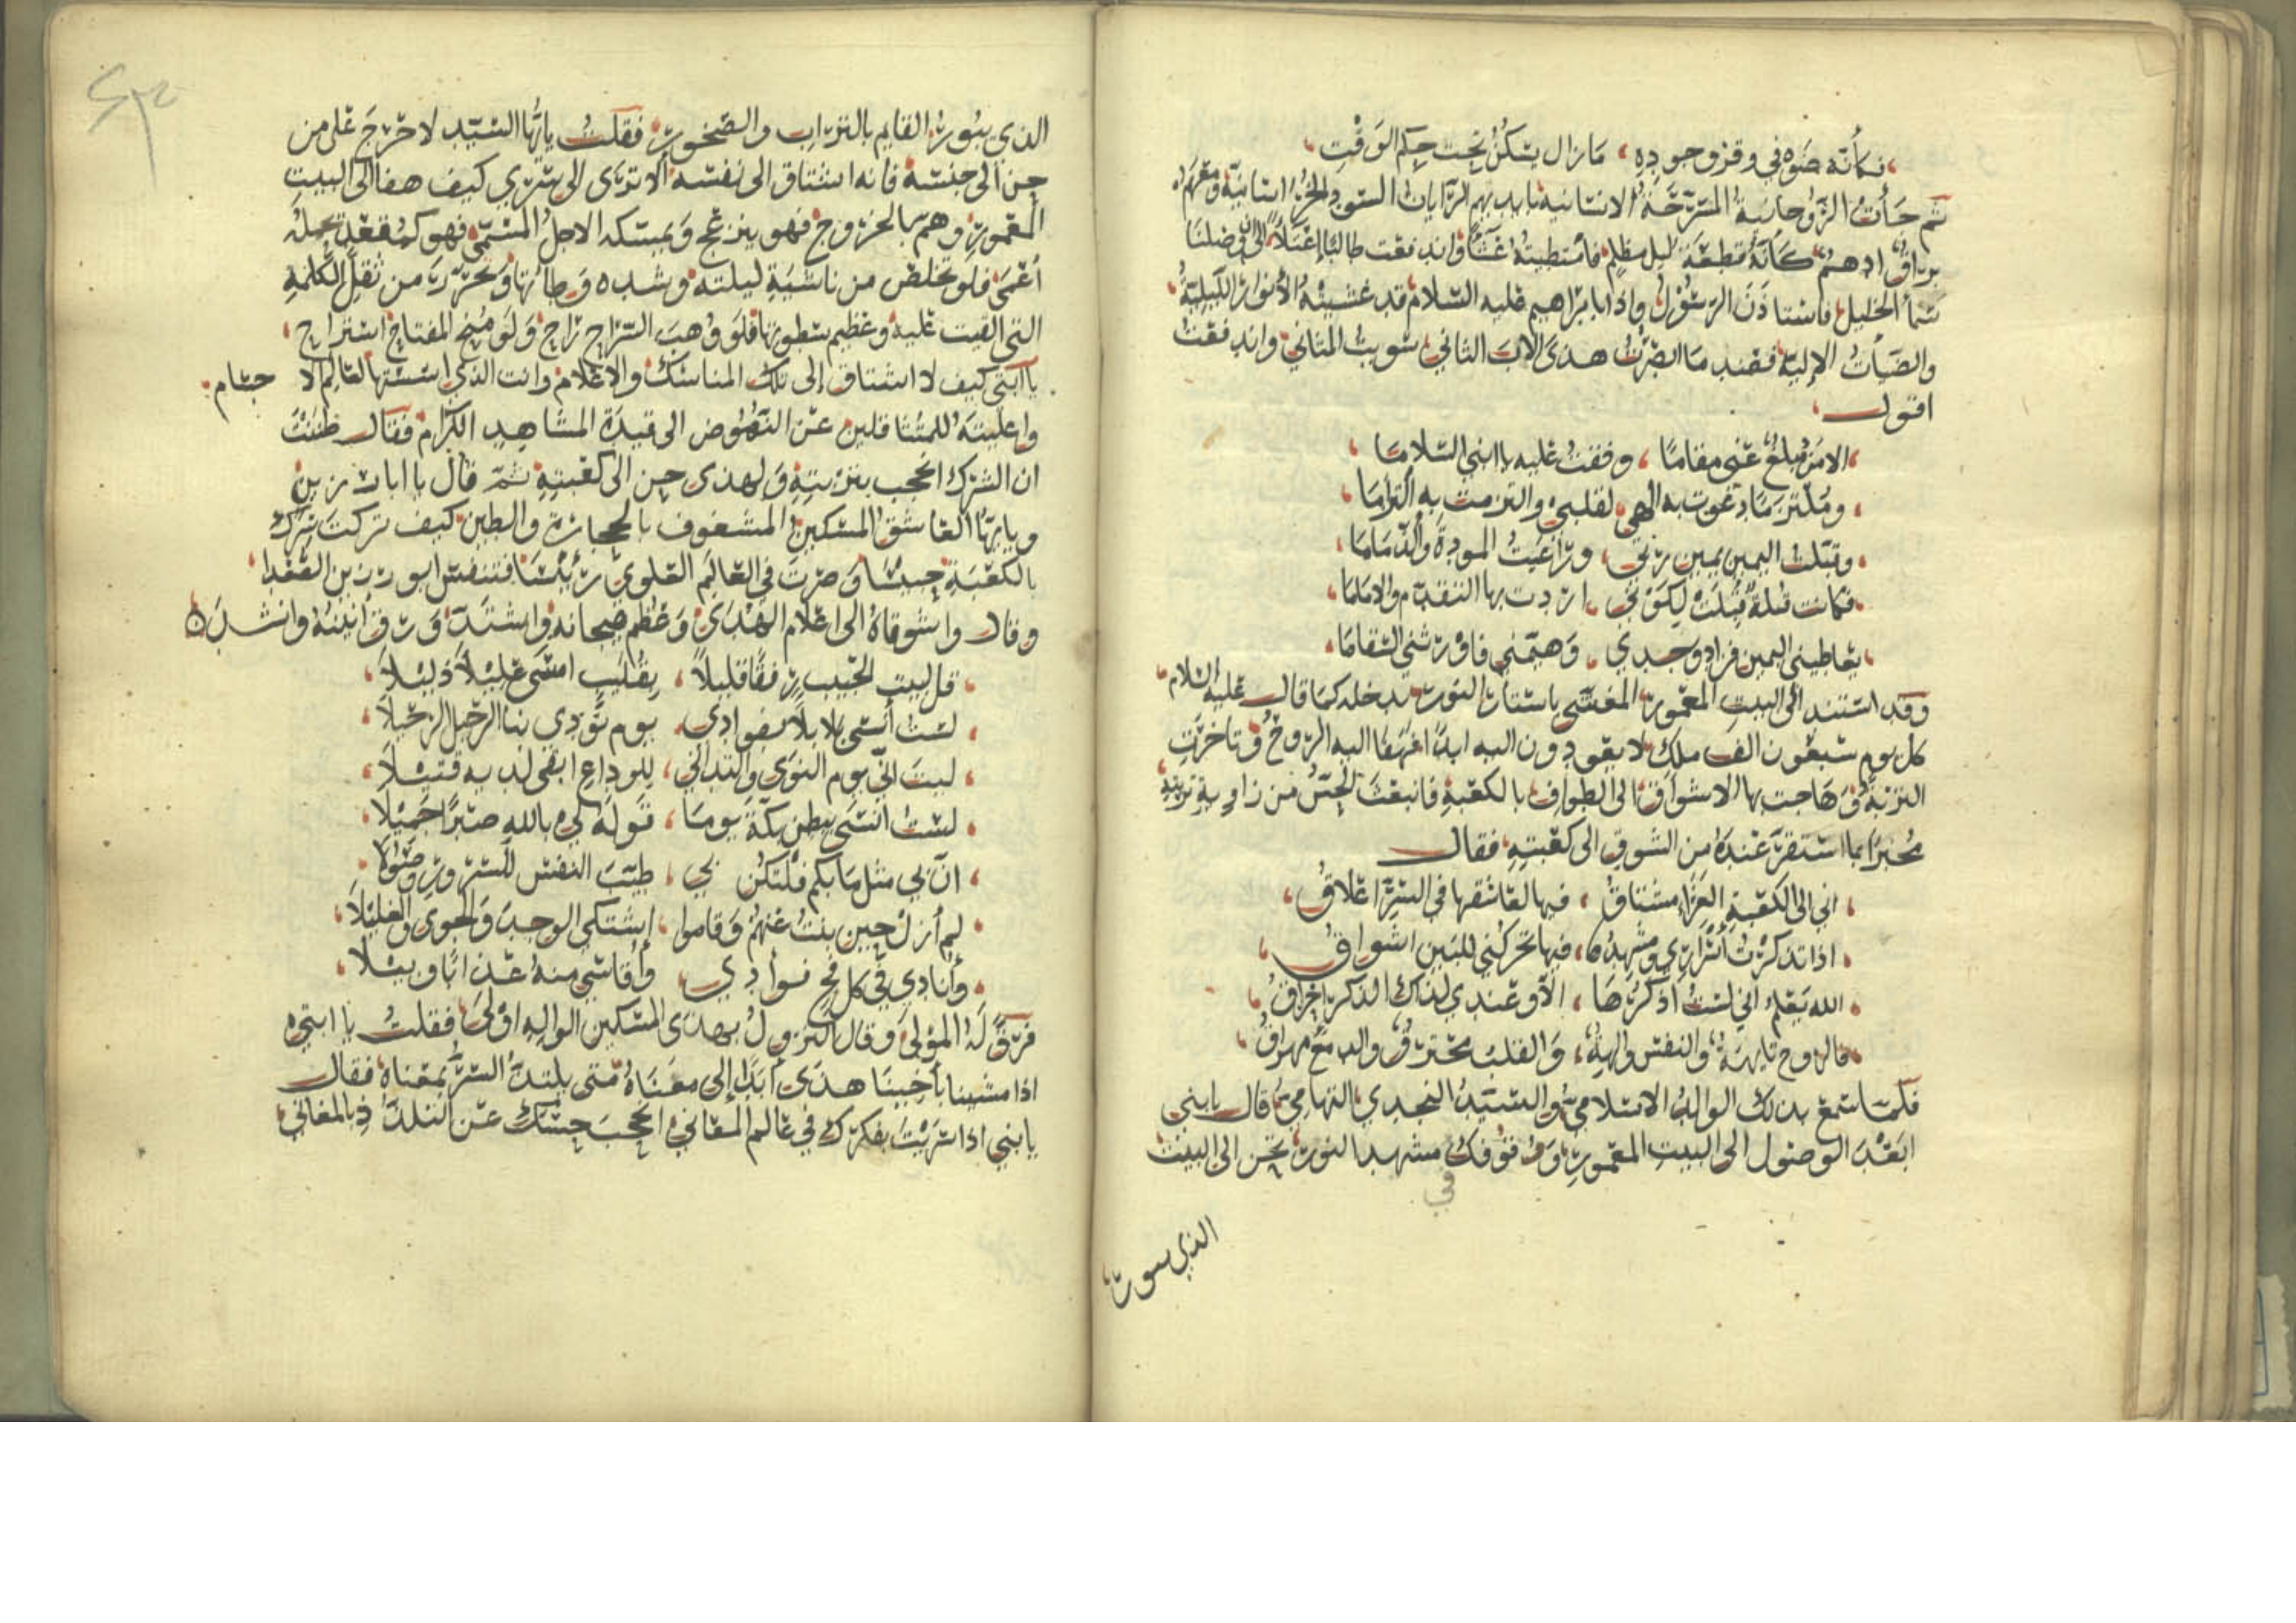 فكأنه صوفي وقر وجوده، ما زال يسكن تحت حكم الوقت،
ثم جأت الروحانية المسرحة الانسانية بايديهم الرايات السود الخراسانية ومعهم
براق ادهم كأنه قطعة ليل مظلم فامتطيته واندفعت طالبا
سما الخليل فاستاذن الرسول واذا بابراهيم عليه السلام قد غشيته الأنوار الليلية
والصبأت الإلية فعند ما ابصرت هذى الاب الثاني سويت المثاني واندفعت
اقول
الا من مبلغ عني مقاما، وقفت عليه يا ابني السلاما
وملتزما دعوت به الهي لقلبي والتزمت به التزاما
وقبلت اليمين يمين ربي، وراعيت المودة والذماما
فكانت قبلة قبلت لكوني، اردت بها التقدم والاماما
يعاطيني اليمين فزاد وجدي، وهيمني فاورثني السقاما
وقد استند الى البيت المعمور المغشى باستار النور يدخله كما قال عليه السلام
كل يوم سبعون الف ملك لا يعودون اليه ابدا اليه الروح وتاخرت
التربة وهاجت بها الاشواق الى الطواف بالكعبة فانبعث الحس من زاوية تربته
مخبرا بما استقر عنده من الشوق الى كعبته فقال
اني الى الكعبة الغرا مشتاق، فيها لعاشقها في السر اعلاق
اذا تذكرت أسراري ومشهدها، فيها تحركني للبين اشواق
الله يعلم اني لست اذكرها، الا وعندي لذاك الذكر إحراق
فالروح تايهة، والنفس والهة، والقلب محترق والدمع مهراق
فلما سمع بذلك الوالد الاسلامي والسيد النجدي التهامي قال يا بني
ابعد الوصول الى البيت المعمور ووقوفك مشهد النور تحن الى البيت
في
الذي بسور
الذي بسور القايم بالتراب والصخور فقلت يا ايها السيد لا حرج على من
حن الى جنسه فانه اشتاق الى نفسه ألا ترى الى سري كيف هفا الى البيت
المعمور وهم بالخروج فهو ينزعج ويمسكه الاجل المسمى فهو كمقعد يحمله
أعمى فلو تخلص من ناشية ليلته وشدة وطاتها وتحرر من ثقل الكلمة
التي القيت عليه وعظيم سطوتها فلو وهب السراج راح ولو منح المفتاح استراح،
يا ابتي كيف لا اشتاق إلى تلك المناسك والاعلام وانت الذي اسستها لعالم الا جسام
واعليته للمتثاقلين عن النهوض الى قيدة المشاهد الكرام فقال ظننت
ان السرك انحجب بتربته ولهذى حن الى كعبته ثم قال يا ابا رزين
ويا ايها العاشق المسكين المشغوف بالحجارة والطين كيف تركت سرك
بالكعبة حبيسا وصرت في العالم العلوي رئيسا فتنفس ابو رزين الصعدا،
وقال واشوقاه الى اعلام الهدى وعظم هيجانه واشتد ورق انينه وانشد
قل لبيت الحبيب رفقا قليلا، بقليب امسى عليلا ذليلا،
لست أنسى بلابلا بفوادي، يوم نودي بنا الرحيل الرحيلا،
ليت اني يوم النوى والتداني، للوداع ابقى لديه قتيلا،
لست انسى ببطن بكة يوما، قوله لي بالله صبرا جميلا،
ان بي مثل ما بكم فلتكن بي، طيب النفس للسرور وصولا
لم أزل حين بنت عنهم وقاموا، إشتكى الوجد والجوى والغليلا،
وأنادي في كل فج فوادي، وأقاسي منه عذابا وبيلا،
فرق له المولى وقال انزول بهذى المسكين الواله اولى فقلت يا ابتي
اذا مشينا بأجيبنا هذى ابدا إلى معناه متى يلتذ السر بمعناه فقال
يا بني اذا سريت بفكرك في عالم المعاني انحجب حسك عن التلذذ بالمغاني